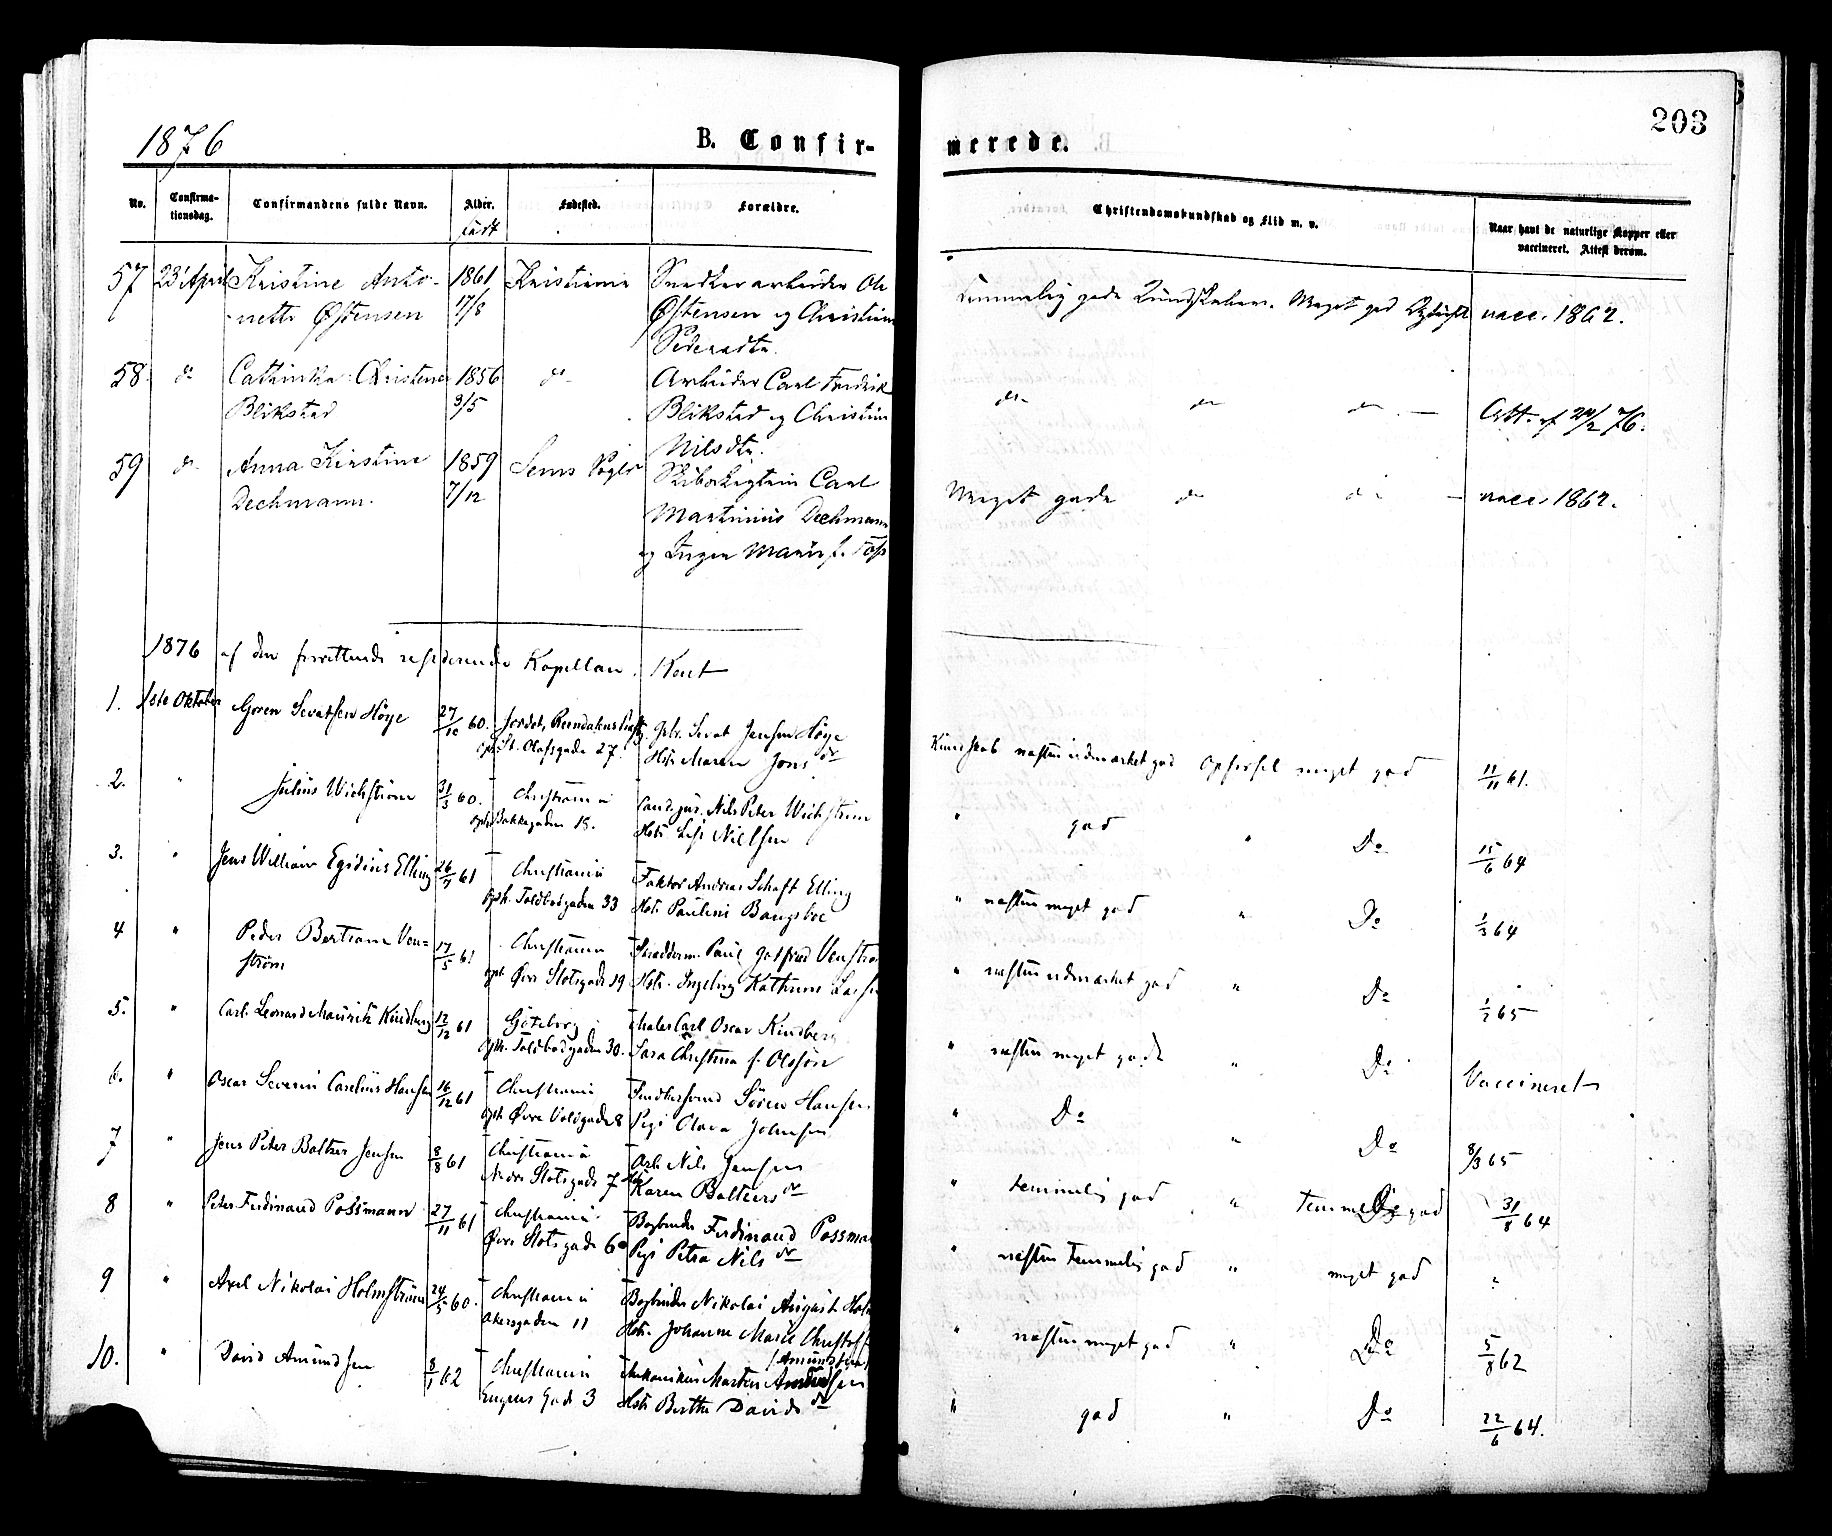 1876
B. Confir-
merede.
203
No.
Confirma-
tionsdag.
Confirmandens fulde Navn.
Alder.
født
Fødested.
Forældre.
Christendomskundskab og Flid m. v.
Naar havt de naturlige Kopper eller
vaccineret. Attest derom.
57 23' April Kristine Anto- 1861 Kristiania Snedkerarbeider Ole
nette Østensen 17/8 Østensen og Christine
Pedersdtr.
Temmelig gode Kundskaber. Meget god vacc. 1862.
58 do Cathinka Christene 1856 do Arbeider Carl Fredrik
Blikstad 3/5 Blikstad og Christine
Nilsdtr.
do do do Att. af
59 do Anna Kirstine 1859 Sems Arbeider Carl
Dechmann. 7/12 Martinius Dechmann
og Inger Marie f.
Meget gode do do vacc. 1862.
1876 af den forrettende residerende Kapellan. Knut
1. 1ste Oktober Goren Sevatsen Høye 27/10 60. Jordet,
oph. St. Olafsgade 27. Sevat Jensen Høye
Hstr. Maren Jons dr
Kundskab næsten udmærket god Opførsel meget god 11/11 61.
2. " Julius Wichstrøm 31/3 60. Christiania Nils Peter Wichstrøm
oph. Bakkegaden 15. Hstr. Nielsen
" god " Do 15/6 64
3. " Jens William Egidius Elling 26/7 61 Christiania Faktor Andreas Schaft Elling
oph. Toldbodgaden 33 Hstr. Pauline Bangsboe
" næsten meget god " Do 1/3 64
4 " Peder Bertram Ven= 17/5 61 Christiania Skrædderm. Paul Gotfried Venstrøm
strøm oph. Øvre Slotsgade 19 Hstr. Ingeborg Kathrine
" næsten udmærket god " Do 1/7 65
5. " Carl Leonard Mauritz Kindberg 12/12 61 Göteborg Maler Carl Oscar Kindberg
oph. Toldbodgaden 30. Sara Christina f. Olsson
" næsten meget gode " Do Vaccineret
6. " Oscar Severin Carelius Hansen 16/12 61 Christiania Søren Hansen
oph. Øvre Voldgade 8 Pige Olava Johnsen
" Do " Do 8/3 65
7 " Jens Peter Baltzer Jensen 8/8 61 Christiania Arb. Nils Jensen
Nedre Slotsgade 7 Karen Balters dr
" temmelig god " temmelig god 31/8 64
8 " Peter Ferdinand Possmann 27/11 61 Christiania Bogbinder Ferdinand Possmann
Øvre Slotsgade 6 Pige Petra Nils dr
" næsten temmelig god " meget god ?
9 " Axel Nikolai Holmstrøm 24/5 60. Christiania Bogbinder Nikolai August
Akersgaden 11 Hstr. Johanne Marie
" næsten meget god " Do 5/8 62
10. " David Amundsen 8/1 62 Christiania Mekanikus Martin Amundsen
(Amundsen)
Eugens Gade 3 Hstr. Berthe Davids dr
" god " Do 22/6 64.